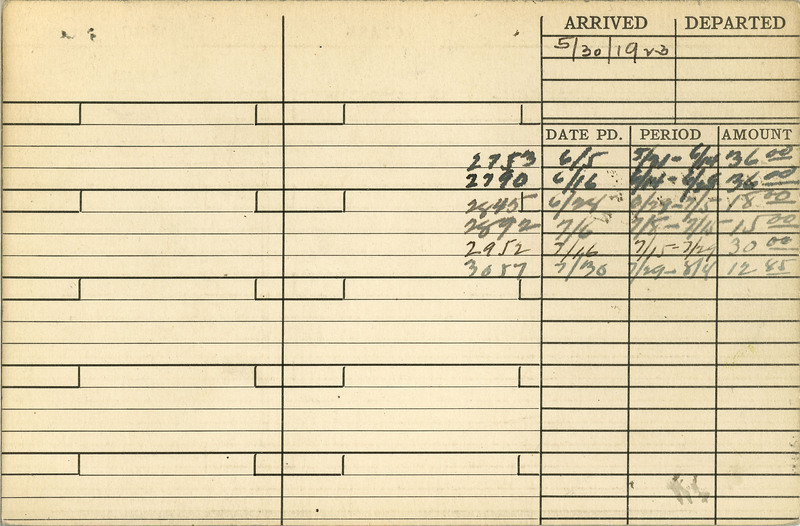 ARRIVED DEPARTED
5/30/1923
DATE PD. PERIOD AMOUNT
2753 6/5 5/31-6/14 36 00
2790 6/16 6/14-6/28 36 00
2845 6/28 18 00
2892 7/6 7/8-7/15 15 00
2952 7/16 7/15-7/29 30 00
3087 7/30 7/29-8/4 12 85